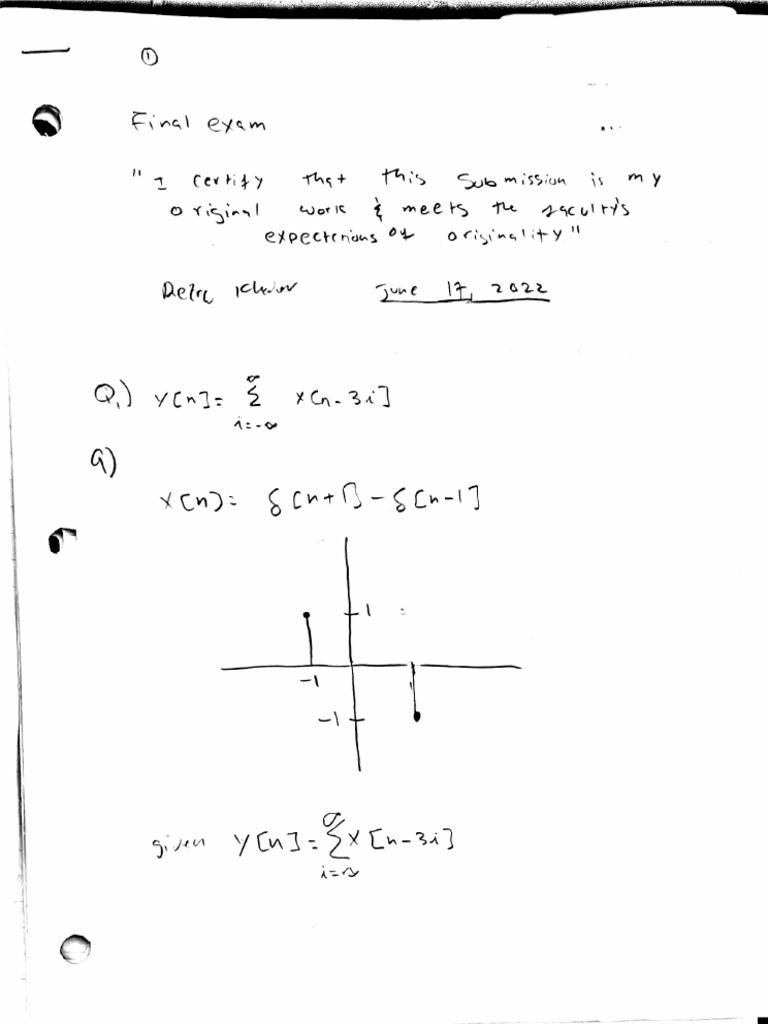 ①
Final exam
"I certify that this submission is my
original work & meets the faculty's
expectations of originality"
June 17, 2022
Q1) y[n] = ∞ Σ i=-∞ x[n-3i]
a)
x[n] = δ[n+1] - δ[n-1]
1
-1
1
-1
given y[n] = ∞ Σ i=∞ x[n-3i]